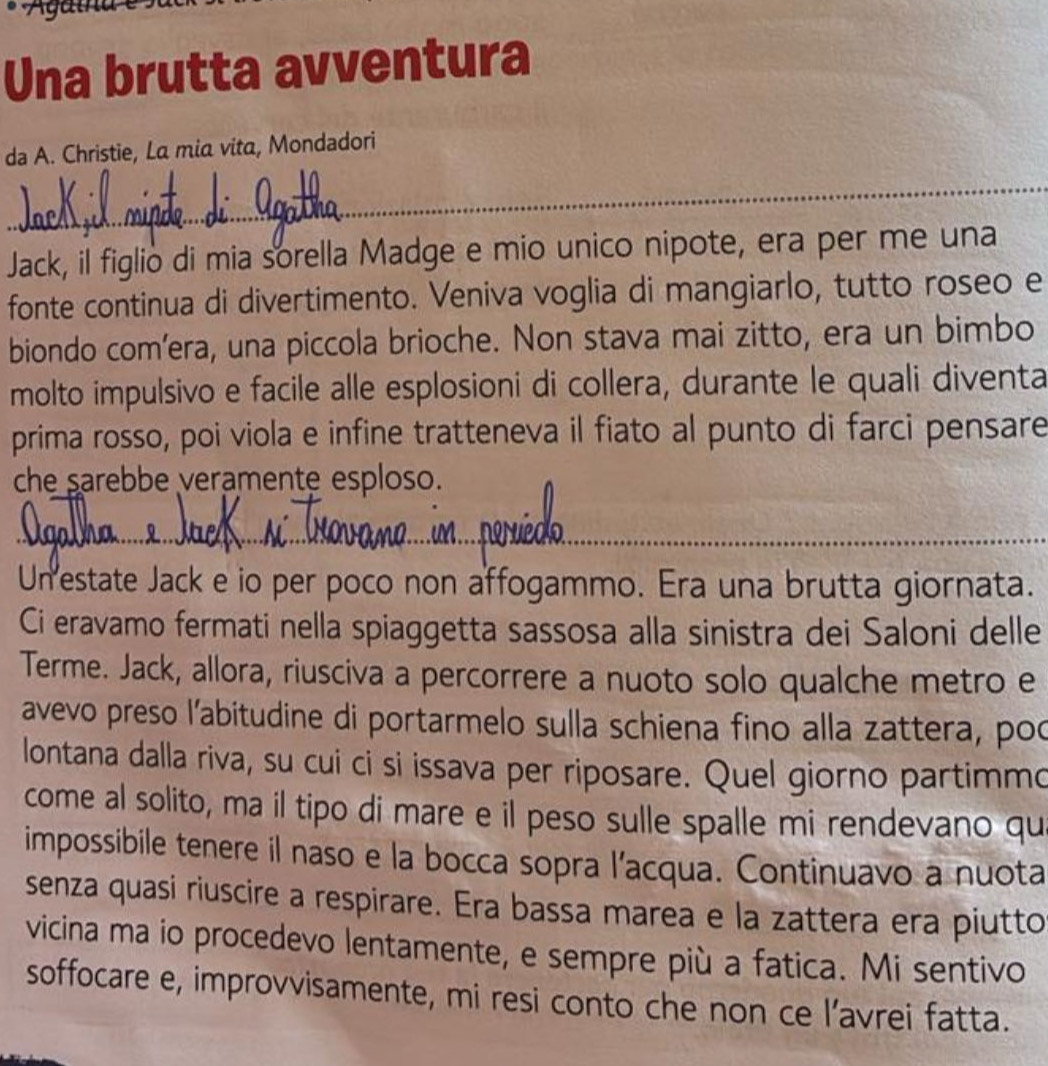 • Agatha e Jack si
Una brutta avventura
da A. Christie, La mia vita, Mondadori
Jack, il nipote di Agatha
Jack, il figlio di mia sorella Madge e mio unico nipote, era per me una
fonte continua di divertimento. Veniva voglia di mangiarlo, tutto roseo e
biondo com'era, una piccola brioche. Non stava mai zitto, era un bimbo
molto impulsivo e facile alle esplosioni di collera, durante le quali diventa
prima rosso, poi viola e infine tratteneva il fiato al punto di farci pensare
che sarebbe veramente esploso.
Agatha e Jack si trovano in periodo
Un'estate Jack e io per poco non affogammo. Era una brutta giornata.
Ci eravamo fermati nella spiaggetta sassosa alla sinistra dei Saloni delle
Terme. Jack, allora, riusciva a percorrere a nuoto solo qualche metro e
avevo preso l'abitudine di portarmelo sulla schiena fino alla zattera, poc
lontana dalla riva, su cui ci si issava per riposare. Quel giorno partimmo
come al solito, ma il tipo di mare e il peso sulle spalle mi rendevano qua
impossibile tenere il naso e la bocca sopra l'acqua. Continuavo a nuota
senza quasi riuscire a respirare. Era bassa marea e la zattera era piutto
vicina ma io procedevo lentamente, e sempre più a fatica. Mi sentivo
soffocare e, improvvisamente, mi resi conto che non ce l'avrei fatta.